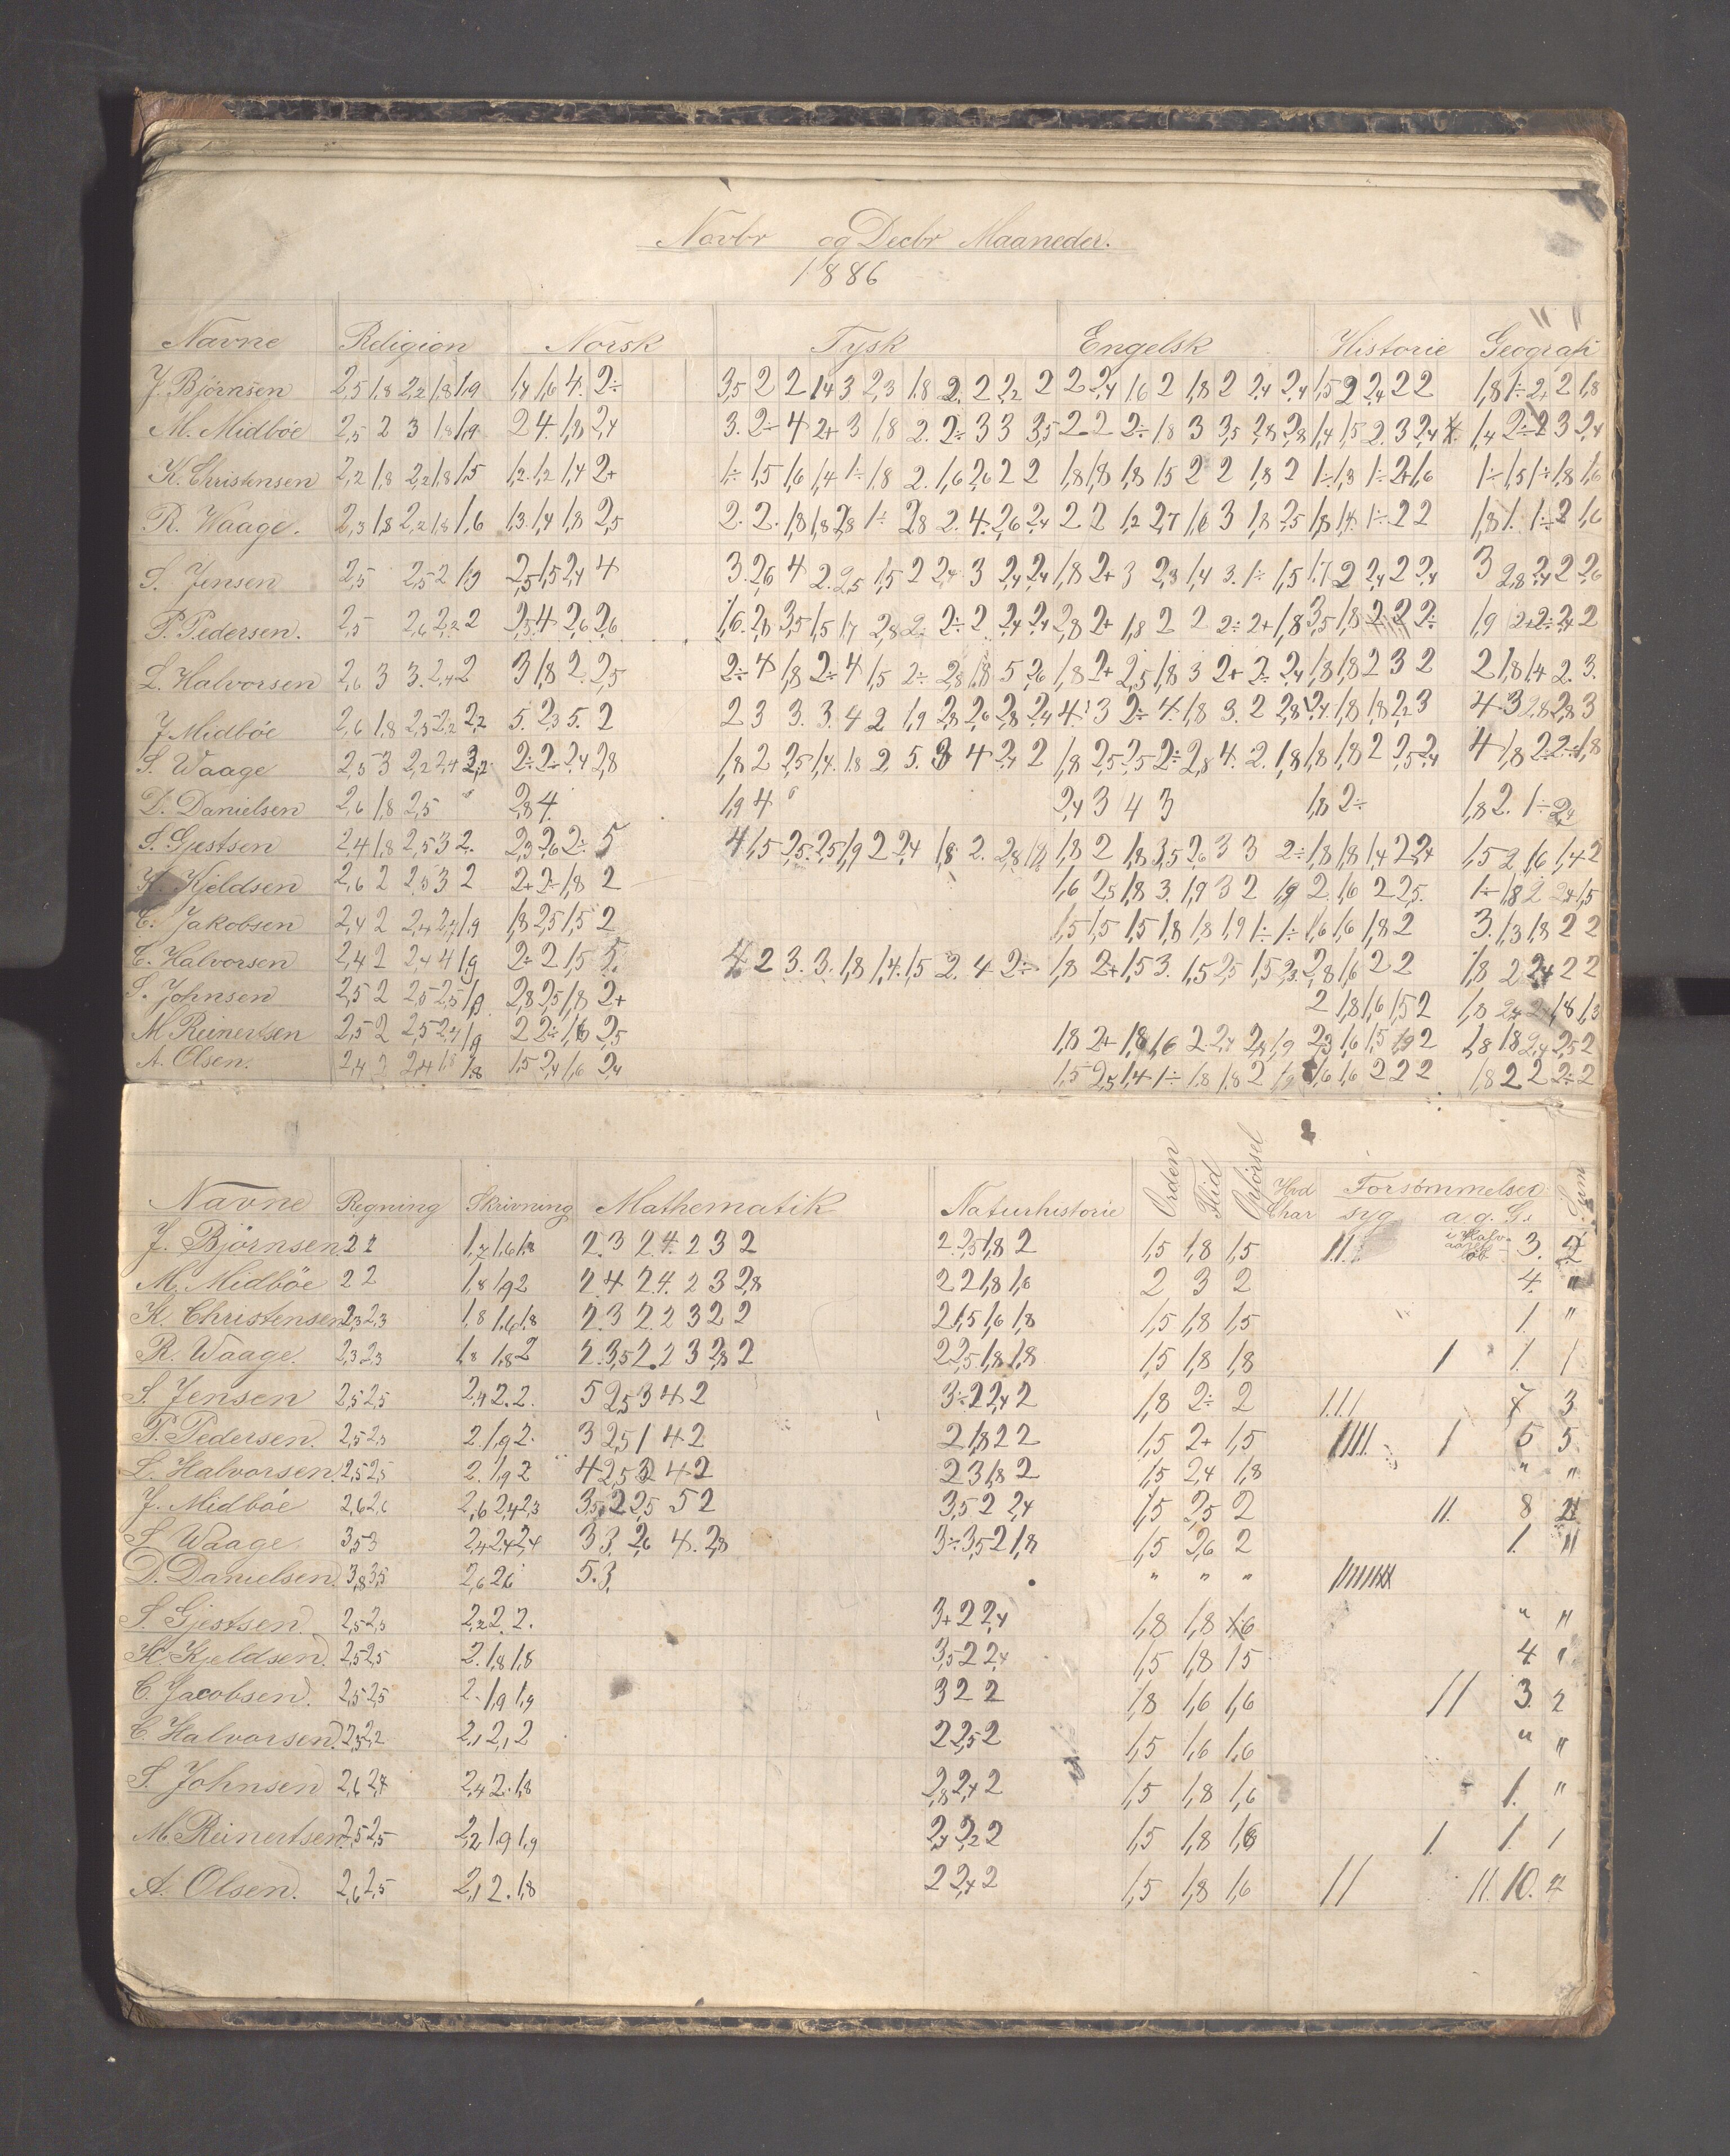 Novbr og Decbr Maaneder.
1886
Navne Religion Norsk Tysk Engelsk Historie Geografi
J. Björnsen 2,5 1,8 2,2 1,8 1,9 1,4 1,6 4. 2÷ 3,5 2 2 1,4 3 2,3 1,8 2. 2 2,2 2 2 2,4 1,6 2 1,8 2 2,4 2,4 1,5 2 2,4 2 2 1,8 1÷ 2+ 2 1,8
M. Midböe 2,5 2 3 1,8 1,9 2 4. 1,8 2,4 3. 2÷ 4 2+ 3 1,8 2. 2÷ 3 3 3,5 2 2 2÷ 1,8 3 3,5 2,8 2,8 1,4 1,5 2. 3 2,4 1,4 2÷ 2 3 2,4
K. Christensen 2,2 1,8 2,2 1,8 1,5 1,2 1,2 1,4 2+ 1÷ 1,5 1,6 1,4 1÷ 1,8 2. 1,6 2,6 2 2 1,8 1,8 1,8 1,5 2 2 1,8 2 1÷ 1,3 1÷ 2+ 1,6 1÷ 1,5 1÷ 1,8 1,6
R. Waage. 2,3 1,8 2,2 1,8 1,6 1,3 1,4 1,8 2,5 2. 2. 1,8 1,8 2,8 1÷ 2,8 2. 4. 2,6 2,4 2 2 1,2 2,7 1,6 3 1,8 2,5 1,8 1,4 1÷ 2 2 1,8 1. 1÷ 2 1,6
S. Jensen 2,5 2,5 2 1,9 2,5 1,5 2,4 4 3. 2,6 4 2. 2,5 1,5 2 2,4 3 2,4 2,4 1,8 2+ 3 2,3 1,4 3. 1÷ 1,5 1,7 2 2,4 2 2,4 3 2,8 2,4 2 2,6
P. Pedersen. 2,5 2,6 2,2 2 2,5 4 2,6 2,6 1,6 2,8 3,5 1,5 1,7 2,8 2÷ 2÷ 2 2,4 2,4 2,8 2+ 1,8 2 2 2÷ 2+ 1,8 3,5 1,8 2 2 2÷ 1,9 2+ 2÷ 2,4 2
L. Halvorsen 2,6 3 3. 2,4 2 3 1,8 2. 2,5 2÷ 4 1,8 2÷ 4 1,5 2÷ 2,8 1,8 5 2,6 1,8 2+ 2,5 1,8 3 2+ 2÷ 2,4 1,8 1,8 2 3 2 2 1,8 1,4 2. 3.
J Midböe 2,6 1,8 2,5 2,2 2,2 5. 2,3 5. 2 2 3 3. 3. 4 2 1,9 2,8 2,6 2,8 2,4 4 3 2÷ 4. 1,8 3. 2 2,8 2,4 1,8 1,8 2,2 3 4 3 2,8 2,8 3
S. Waage 2,5 3 2,2 2,4 3,2 2÷ 2÷ 2,4 2,8 1,8 2 2,5 1,4. 1,8 2 5. 3 4 2,4 2 1,8 2,5 2,5 2÷ 2,8 4. 2. 1,8 1,8 1,8 2 2,5 2,4 4 1,8 2÷ 2÷ 1,8
D. Danielsen 2,6 1,8 2,5 2,8 4. 1,9 4 2,4 3 4 3 1,8 2÷ 1,8 2. 1÷ 2,4
S. Gjestsen 2,4 1,8 2,5 3 2. 2,3 2,6 2÷ 5 4 1,5 2,5. 2,5 1,9 2 2,4 1,8 2. 2,8 1,8 1,8 2 1,8 3,5 2,6 3 3 2÷ 1,8 1,8 1,4 2 2,4 1,5 2 1,6 1,4 2
K. Kjeldsen 2,6 2 2,5 3 2 2+ 2÷ 1,8 2 1,6 2,5 1,8 3. 1,9 3 2 1,9 2. 1,6 2 2,5. 1÷ 1,8 2 2,4 1,5
C. Jakobsen 2,4 2 2,4 2,4 1,9 1,8 2,5 1,5 2 1,5 1,5 1,5 1,8 1,8 1,9 1÷ 1÷ 1,6 1,6 1,8 2 3. 1,3 1,8 2 2
C. Halvorsen 2,4 2 2,4 4 1,9 2÷ 2 1,5 5. 4 2 3. 3. 1,8 1,4. 1,5 2. 4 2÷ 1,8 2+ 1,5 3. 1,5 2,5 1,5 2,3. 2,8 1,6 2 2 1,8 2 2,4 2 2
S. Johnsen 2,5 2 2,5 2,5 1,9 2,8 2,5 1,8 2+ 2 1,8 1,6 1,5 2 1,8 2,4 2 1,8 1,3
M Reinertsen 2,5 2 2,5 2,4 1,9 2 2÷ 1,6 2,5 1,8 2+ 1,8 1,6 2 2,4 2,8 1,9 2,3 1,6 1,5 1,9 2 1,8 1,8 2,4 2,5 2
A. Olsen. 2,4 2 2,4 1,8 1,8 1,5 2,4 1,6 2,4 1,5 2,5 1,4 1÷ 1,8 1,8 2 1,9 1,6 1,6 2 2 2 1,8 2 2 2÷ 2
Navne Regning Skrivning Mathematik Naturhistorie Orden Flid Opförsel Hvd Char Forsömmelser Sum
syg a.g. G.
J. Björnsen 2 2 1,7 1,6 1,8 2. 3 2. 4. 2 3 2 2 2,5 1,8 2 1,5 1,8 1,5 11. i Halv- 3. 2
M. Midböe 2 2 1,8 1,9 2 2. 4 2. 4. 2 3 2,8 2 2 1,8 1,6 2 3 2 4. "
K. Christensen 2,3 2,3 1,8 1,6 1,8 2. 3 2. 2 3 2 2 2 1,5 1,6 1,8 1,5 1,8 1,5 1. "
R. Waage. 2,3 2,3 1,8 1,8 2 2. 3,5 2. 2 3 2,8 2 2 2,5 1,8 1,8 1,5 1,8 1,8 1 1. 1
S. Jensen 2,5 2,5 2,4 2. 2. 5 2,5 3 4 2 3÷ 2 2,4 2 1,8 2÷ 2 1.1.1 7 3
P. Pedersen. 2,5 2,5 2. 1,9 2. 3 2,5 1 4 2 2 1,8 2 2 1,5 2+ 1,5 1111. 1 5 5
L. Halvorsen. 2,5 2,5 2. 1,9 2 4 2,5 3 4 2 2 3 1,8 2 1,5 2,4 1,8 " "
J. Midböe 2,6 2,6 2,6 2,4 2,3 3,5 2 2,5 5 2 3,5 2 2,4 1,5 2,5 2 11. 8 2
S Waage. 3,5 3 2,4 2,4 2,4 3 3. 2,6 4. 2,8 3÷ 3,5 2 1,8 1,5 2,6 2 1. "
D. Danielsen. 3,8 3,5 2,6 2,6 5. 3. " " "
S. Gjestsen. 2,5 2,5 2,2 2. 2. 3+ 2 2,4 1,8 1,8 1,6 " "
K. Kjeldsen. 2,5 2,5 2. 1,8 1,8 3,5 2 2,4 1,5 1,8 1,5 4 "
C. Jacobsen. 2,5 2,5 2. 1,9 1,9 3 2 2 1,8 1,6 1,6 11 3. 2
C. Halvorsen. 2,3 2,2 2,1 2,1 2 2 2,5 2 1,5 1,6 1,6 " "
S. Johnsen 2,6 2,4 2,4 2. 1,8 2,8 2,4 2 1,5 1,8 1,6 1. "
M. Reinertsen. 2,5 2,5 2,2 1,9 1,9 2,4 2,2 2 1,5 1,8 1,8 1. 1. 1
A. Olsen. 2,6 2,5 2,1 2. 1,8 2 2,4 2 1,5 1,8 1,6 11 11. 10. 4